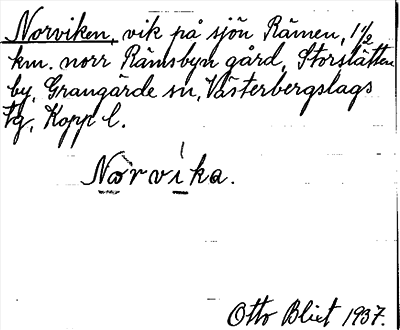 Norviken, vik på sjön Rämen, 1 1/2
km. norr Rämsbyn gård, Storslätten
by, Grangärde sn, Västerbergslags
tg, Kopp l.
Norvika.
Otto Blixt 1937.